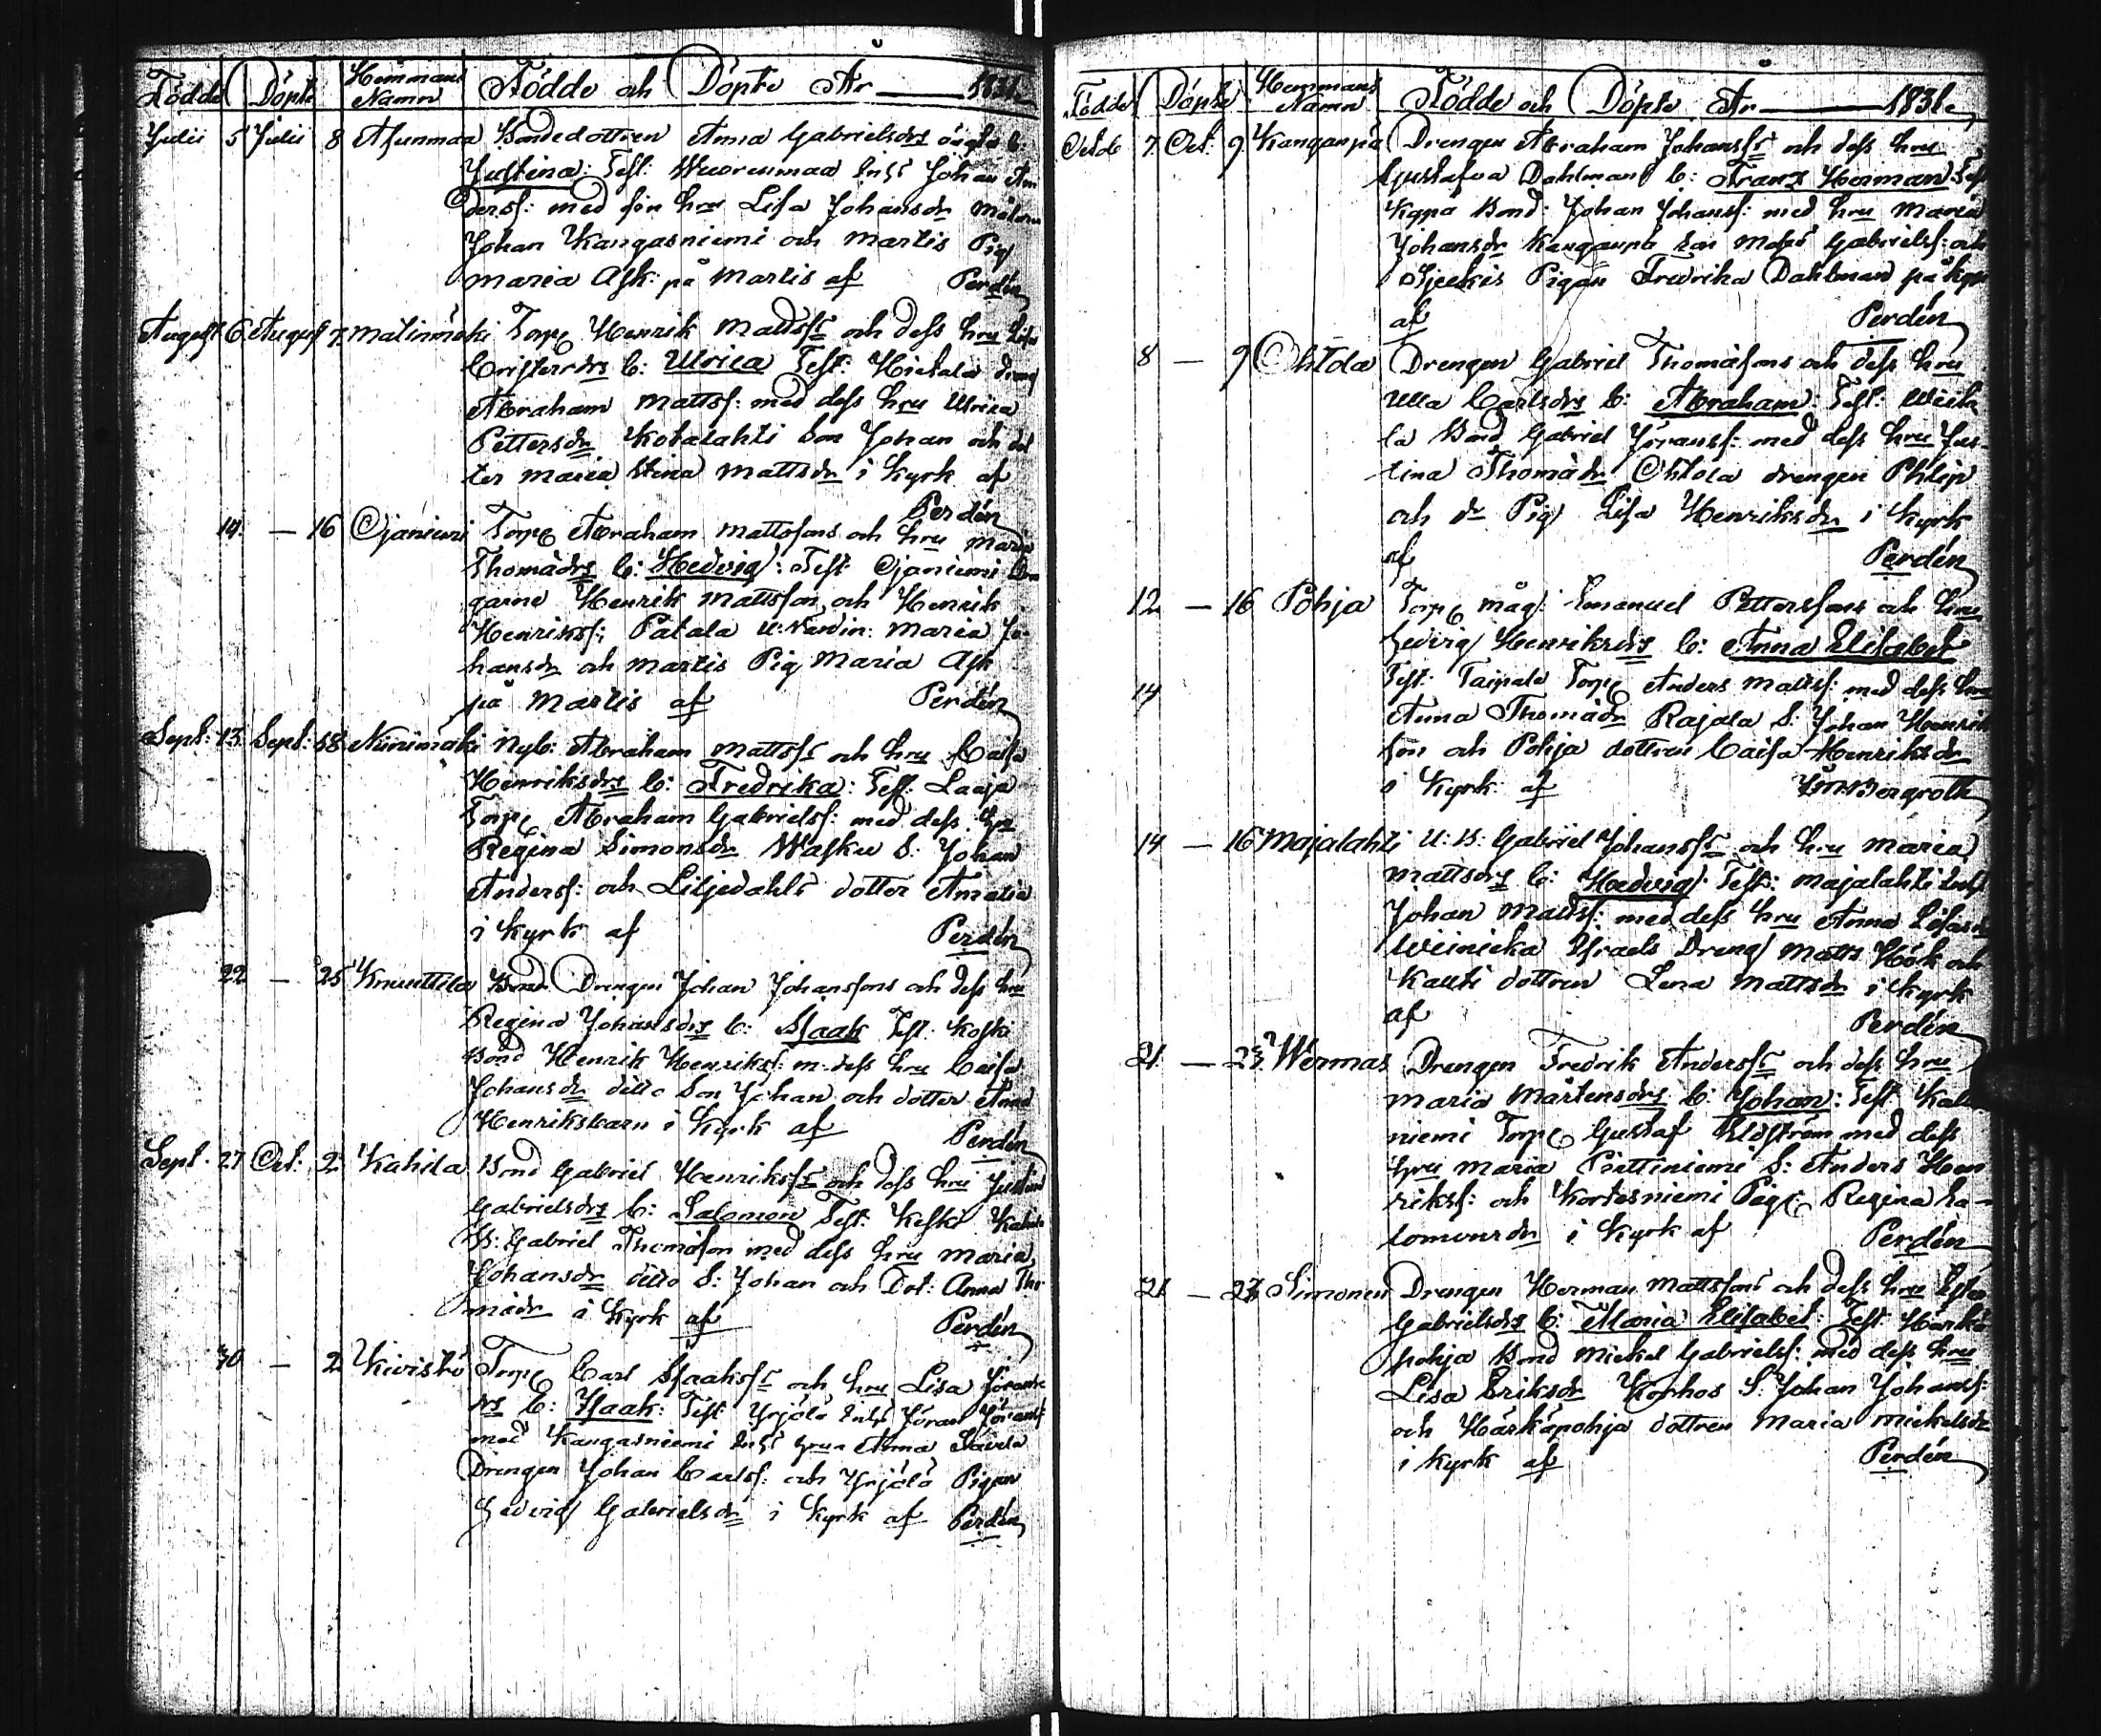 Födde Döpte Hemmans Namn Födde och Döpte År 1831.
Julii 5 Julii 8 Ahunmaa Bondedottren Anna Gabrielsdrs oägta b:
Justina: Test: Wuorenmaa Inhs Johan An
derss: med sin hru Lisa Johansdr
Johan Kangasniemi och Martis Pig
Maria Ask: på Martis af Perdén
August 6 August 7 Mälinmäki Torp Henrik Mattss och dess hru Lisa
Cristersdrs b: Ulrica Test: Hietala dreng
Abraham Mattss: med dess hru Ulrica
Pettersdr Kotalahti Son Johan och dot
ter Maria Stina Mattsdr i Kyrk af
Perdén
14 — 16 Ojaniemi Torp Abraham Mattssons och hru Maria
Thomädrs b: Hedvig: Test Ojaniemi
Henrik Mattsson och Henrik
Henrikss: Patala Maria Jo
hansdr och Martis Pig Maria Ask
på Martis af Perdén
Sept: 13 Sept: 18 Niinimäki Nyb: Abraham Mattss och hru Caisa
Henriksdrs b: Fredrika: Test: Laaja
Torp Abraham Gabrielss: med dess hru
Regina Simonsdr Wasku S: Johan
Anderss: och Liljedahls dotter Amalia
i Kyrk af Perdén
22 — 25 Knuuttila Drengen Johan Johanssons och dess hru
Regina Johansdrs b: Isaak Test: Koski
Bond Henrik Henrikss: m: dess hru Caisa
Johansdr ditto Son Johan och dotter Anna
Henriksbarn i Kyrk af Perdén
Sept. 27 Oct: 2 Kahila Bond Gabriel Henrikss och dess hru Justina
Gabrielsdrs b: Salomon Test: Keski Kahila
B: Gabriel Thomäson med dess hru Maria
Johansdr ditto S: Johan och Dot: Anna Tho
mädr i Kyrk af Perdén
30 — 2 Kivistö Torp Carl Isaakss och hru Lisa Jörans
drs b: Isaak: Test Yrjölä Inhs Jöran Jöranss
med Kangasniemi Inhs hru Anna
Drengen Johan Carlss: och Yrjölä Pigan
Hedvig Gabrielsdr i Kyrk af Perdén
Födde Döpte Hemmans Namn Födde och Döpte År 1831.
Octob 7 Oct: 9 Kanganpä Drengen Abraham Johanss och dess hru
Gustafva Dahlmans b: Franz Herman Test
Kgpä Bond: Johan Johanss: med hru Maria
Johansdr Kanganpä Matts Gabrielss: och
Pigan Fredrika Dahlman på Kgpä
af Perdén
8 — 9 Ohtola Drengen Gabriel Thomäsons och dess hru
Ulla Carlsdrs b: Abraham: Test:
la Bond Gabriel Jöranss: med dess hru Jus
tina Thomädr Ohtola drengen Philip
och do Pig Lisa Henriksdr i Kyrk
af Perdén
12 — 16 Pohja Torp måg: Emanuel Petterssons och hru
Hedvig Henriksdrs b: Anna Elisabet
14 Test: Taipale Torp Anders Mattss: med dess hru
Anna Thomädr Rajala S: Johan Henrik
son och Pohja dottren Caisa Henriksdr
i Kyrk: af Bergroth
14 — 16 Majalahti U: B: Gabriel Johanss och hru Maria
Mattsdrs b: Hedvig: Test: Majalahti Inhs
Johan Mattss: med dess hru Anna
Israels Dreng Matts Höök och
Kautti dottren Lena Mattsdr i Kyrk
af Perdén
21 — 23 Wermas Drengen Fredrik Anderss och dess hru
Maria Mårtensdrs b: Johan: Test
niemi Torp Gustaf med dess
hru Maria Pirttiniemi S: Anders Hen
rikss: och Kortesniemi Pig: Regina Sa
lomonsdr i Kyrk af Perdén
21 — 23 Simonen Drengen Herman Mattssons och dess hru Ester
Gabrielsdrs b: Maria Elisabet: Test: Härkä
pohja Bond Mickel Gabrielss: med dess hru
Lisa Eriksdr Korhos S: Johan Johanss:
och Härkäpohja dottren Maria Mickelsdr
i Kyrk af Perdén